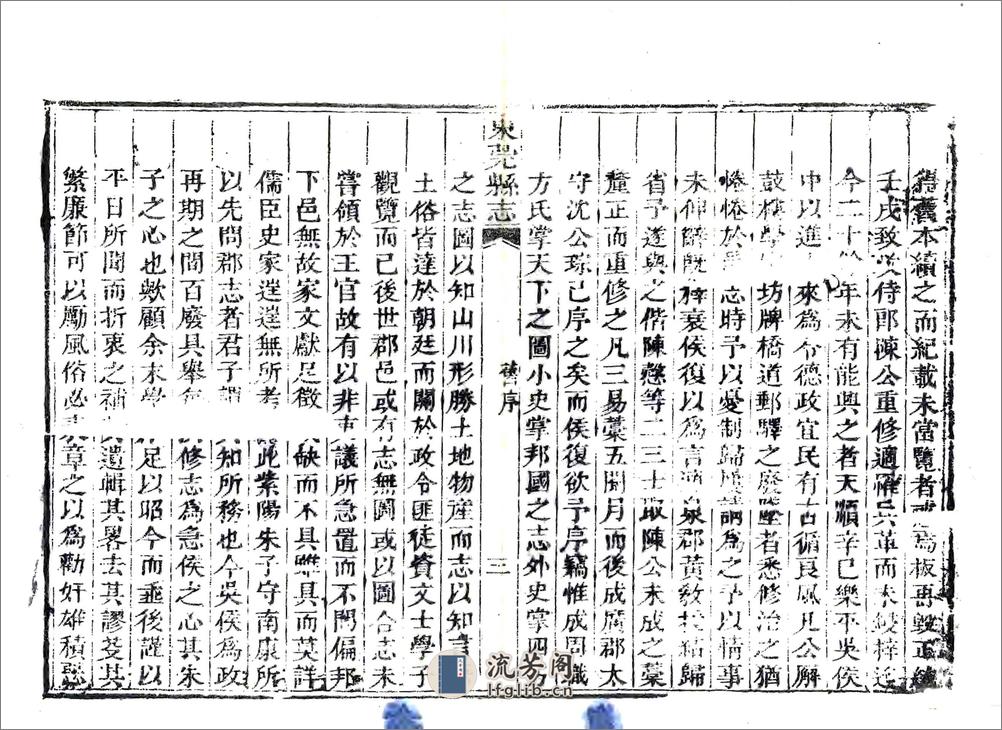 舊本續之而紀載未當覽者焉板再毀正統
壬戌致仕侍郎陳公重修適罹兵革而未綬梓迄
今二十年未有能興之者天順辛巳樂平吳侯
中以進來為令德政宜民有古循良風凡公廨
鼓樓學坊牌橋道郵驛之廢墜者悉修治之猶
惓惓於志時予以憂制歸屢請為之予以情事
未伸辭既釋衰侯復以為言適泉郡黃教其結歸
省予遂與之偕陳懋等二三士取陳公未成之藁
釐正而重修之凡三易藁五閱月而後成廣郡太
守沈公琮已序之矣而侯復欲予序竊惟成周職
方氏掌天下之圖小史掌邦國之志外史掌四方
東莞縣志
舊序
三
之志圖以知山川形勝土地物產而志以知言
土俗皆達於朝廷而關於政令匪徒資文士學子
觀覽而已後世郡邑或有志無圖或以圖合志未
嘗領於王官故有以非吏議所急置而不問偏邦
下邑無故家文獻足徵缺而不具雖具而莫詳
儒臣史家遑遑無所考此紫陽朱子守南康所
以先問郡志者君子謂知所務也今吳侯為政
再期之間百廢具舉修志為急侯之心其朱
子之心也歟顧余末學足以昭今而垂後謹以
平日所聞而折衷之補其遺輯其畧去其謬芟其
繁廉節可以勵風俗必章之以為勸奸雄積惡
流芳阁
lfglib.cn